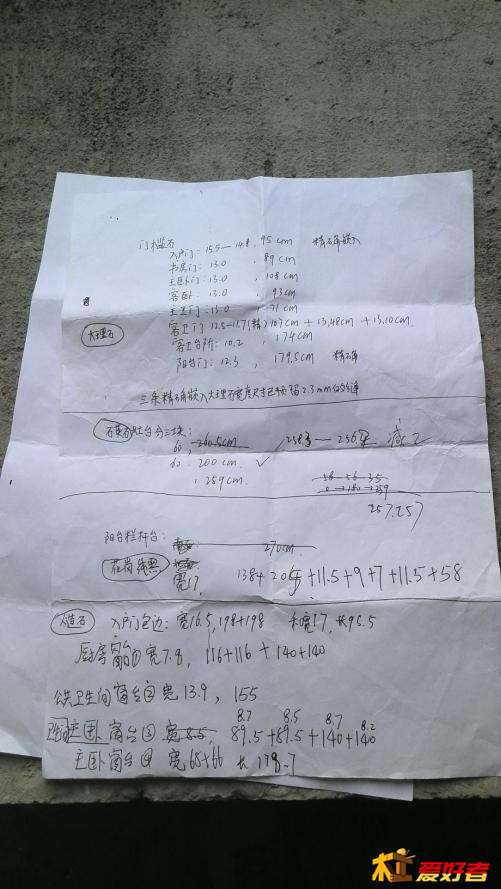 门槛石
入户门: 15.5—14.8, 95cm 精石自嵌入
书房门: 13.0 , 89cm
主卧门: 13.0 , 108cm
客卧: 13.0 , 93cm
主卫门: 13.0 , 71cm
客卫门 12.5-11.7(精) 107cm + 13,48cm + 13.10cm
大理石
客卫台阶: 10.2, 174cm
阳台门: 12.3, 179.5cm
三条精石自嵌入大理石宽度尺寸已预留2.3mm
灶台分三块:
60, 260.5cm 258 256 减2
60: 200cm ✓
, 259cm
257.257
阳台栏杆台:
270cm
宽17, 138+20.5+11.5+9+7+11.5+58
人造石 入户门包边: 宽16.5, 198+198 宽17, 长95.5
厨房窗台 宽7.8, 116+116+140+140
公共卫生间窗台 宽13.9, 155
8.7 8.5 8.7 8.2
主卧窗台 宽8.5, 89.5+89.5+140+140
主卧窗台 宽65+66 长178.7
爱好者